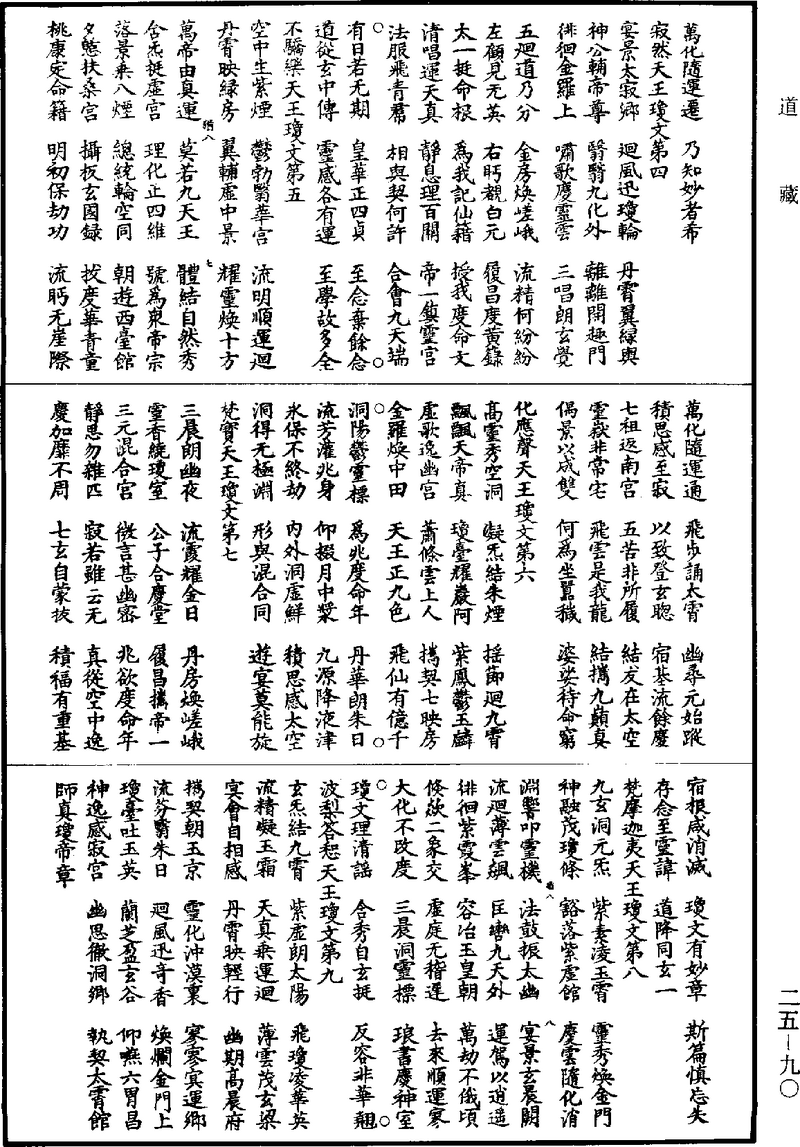 道藏
萬化隨運遷　乃知妙者希
寂然天王瓊文第四
宴景太寂鄉　迴風迅瓊輪　丹霄翼綠輿
神公輔帝尊　翳翳九化外　離離開趣門
徘徊金羅上　嘯歌慶靈雲　三唱朗玄覺
五迴道乃分　金房煥嵯峨　流精何紛紛
左顧見无英　右眄覩白元　履昌度黃籙
太一挺命根　為我記仙籍　授我度命文
清唱運天真　靜息理百關　帝一鎮靈宮
法服飛青帬　相與契何許　合會九天端
有日若无期　皇華正四貞　至念棄餘念
道從玄中傳　靈感各有運　至學故多全
不驕樂天王瓊文第五
空中生紫煙　鬱勃翳華宮　流明順運迴
丹霄映綠房　翼輔虛中景　耀靈煥十方
八　七
萬帝由真運　莫若九天王　體結自然秀
含炁挺虛宮　理化正四維　號為衆帝宗
落景乘八煙　總統輪空同　朝遊西臺館
夕憩扶桑宮　攝校玄圖録　拔度華青童
桃康定命籍　明初保劫功　流眄无崖際
萬化隨運通　飛步誦太霄　幽尋元始蹤
積思感至寂　以致登玄聦　宿基流餘慶
七祖返南宮　五苦非所履　結友在太空
靈嶽非常宅　飛雲是我龍　結攜九巔真
偶景以成雙　何為坐囂穢　婆娑待命窮
化應聲天王瓊文第六
高靈秀空洞　凝炁結朱煙　揺節迴九霄
飄飄天帝真　瓊臺耀巖阿　紫鳳鬱玉麟
虛歌逸幽宮　蕭條雲上人　攜契七映房
金羅煥中田　天王正九色　飛仙有億千
洞陽鬱靈標　為兆度命年　丹華朗朱日
流芳灌兆身　仰掇月中漿　九源降液津
永保不終劫　內外洞虛鮮　積思感太空
洞得无極淵　形與混合同　遊宴莫能旋
梵寶天王瓊文第七
三晨朗幽夜　流霞耀金日　丹房煥嵯峨
靈香繞瓊室　公子合慶堂　履昌攜帝一
三元混合宮　微言甚幽密　兆欲度命年
靜思勿雜匹　寂若雖云无　真從空中逸
慶加靡不周　七玄自蒙拔　積福有重基
宿根咸消滅　瓊文有妙章　斯篇慎忘失
存念至靈諱　道降同玄一
梵摩迦夷天王瓊文第八
九玄洞元炁　紫素淩玉霄　靈秀煥金門
神融茂瓊條　豁落紫虛館　慶雲隨化消
八　八
淵響叩靈機　法鼓振太幽　宴景玄晨闕
流迴薄雲颻　匡轡九天外　運駕以逍遥
徘徊紫霞峯　容冶玉皇朝　萬劫不俄頃
倏欻二象交　虛庭无稽遲　去來順運寥
大化不改度　三晨洞靈標　琅書慶神室
瓊文理清謡　合秀自玄挺　反容非華翹
波梨荅惒天王瓊文第九
玄炁結九霄　紫虛朗太陽　飛瓊凌華英
流精凝玉霜　天真乘運迴　薄雲茂玄梁
宴會自相感　丹霄映輕行　幽期高晨府
攜契朝玉京　靈化沖漠裏　寥寥寘運鄉
流芬翳朱日　迴風迅奇香　煥爛金門上
瓊臺吐玉英　蘭芝盈玄谷　仰嚥六胃昌
神逸感寂宮　幽思徹洞鄉　執契太霄館
師真瓊帝章
二五－九〇